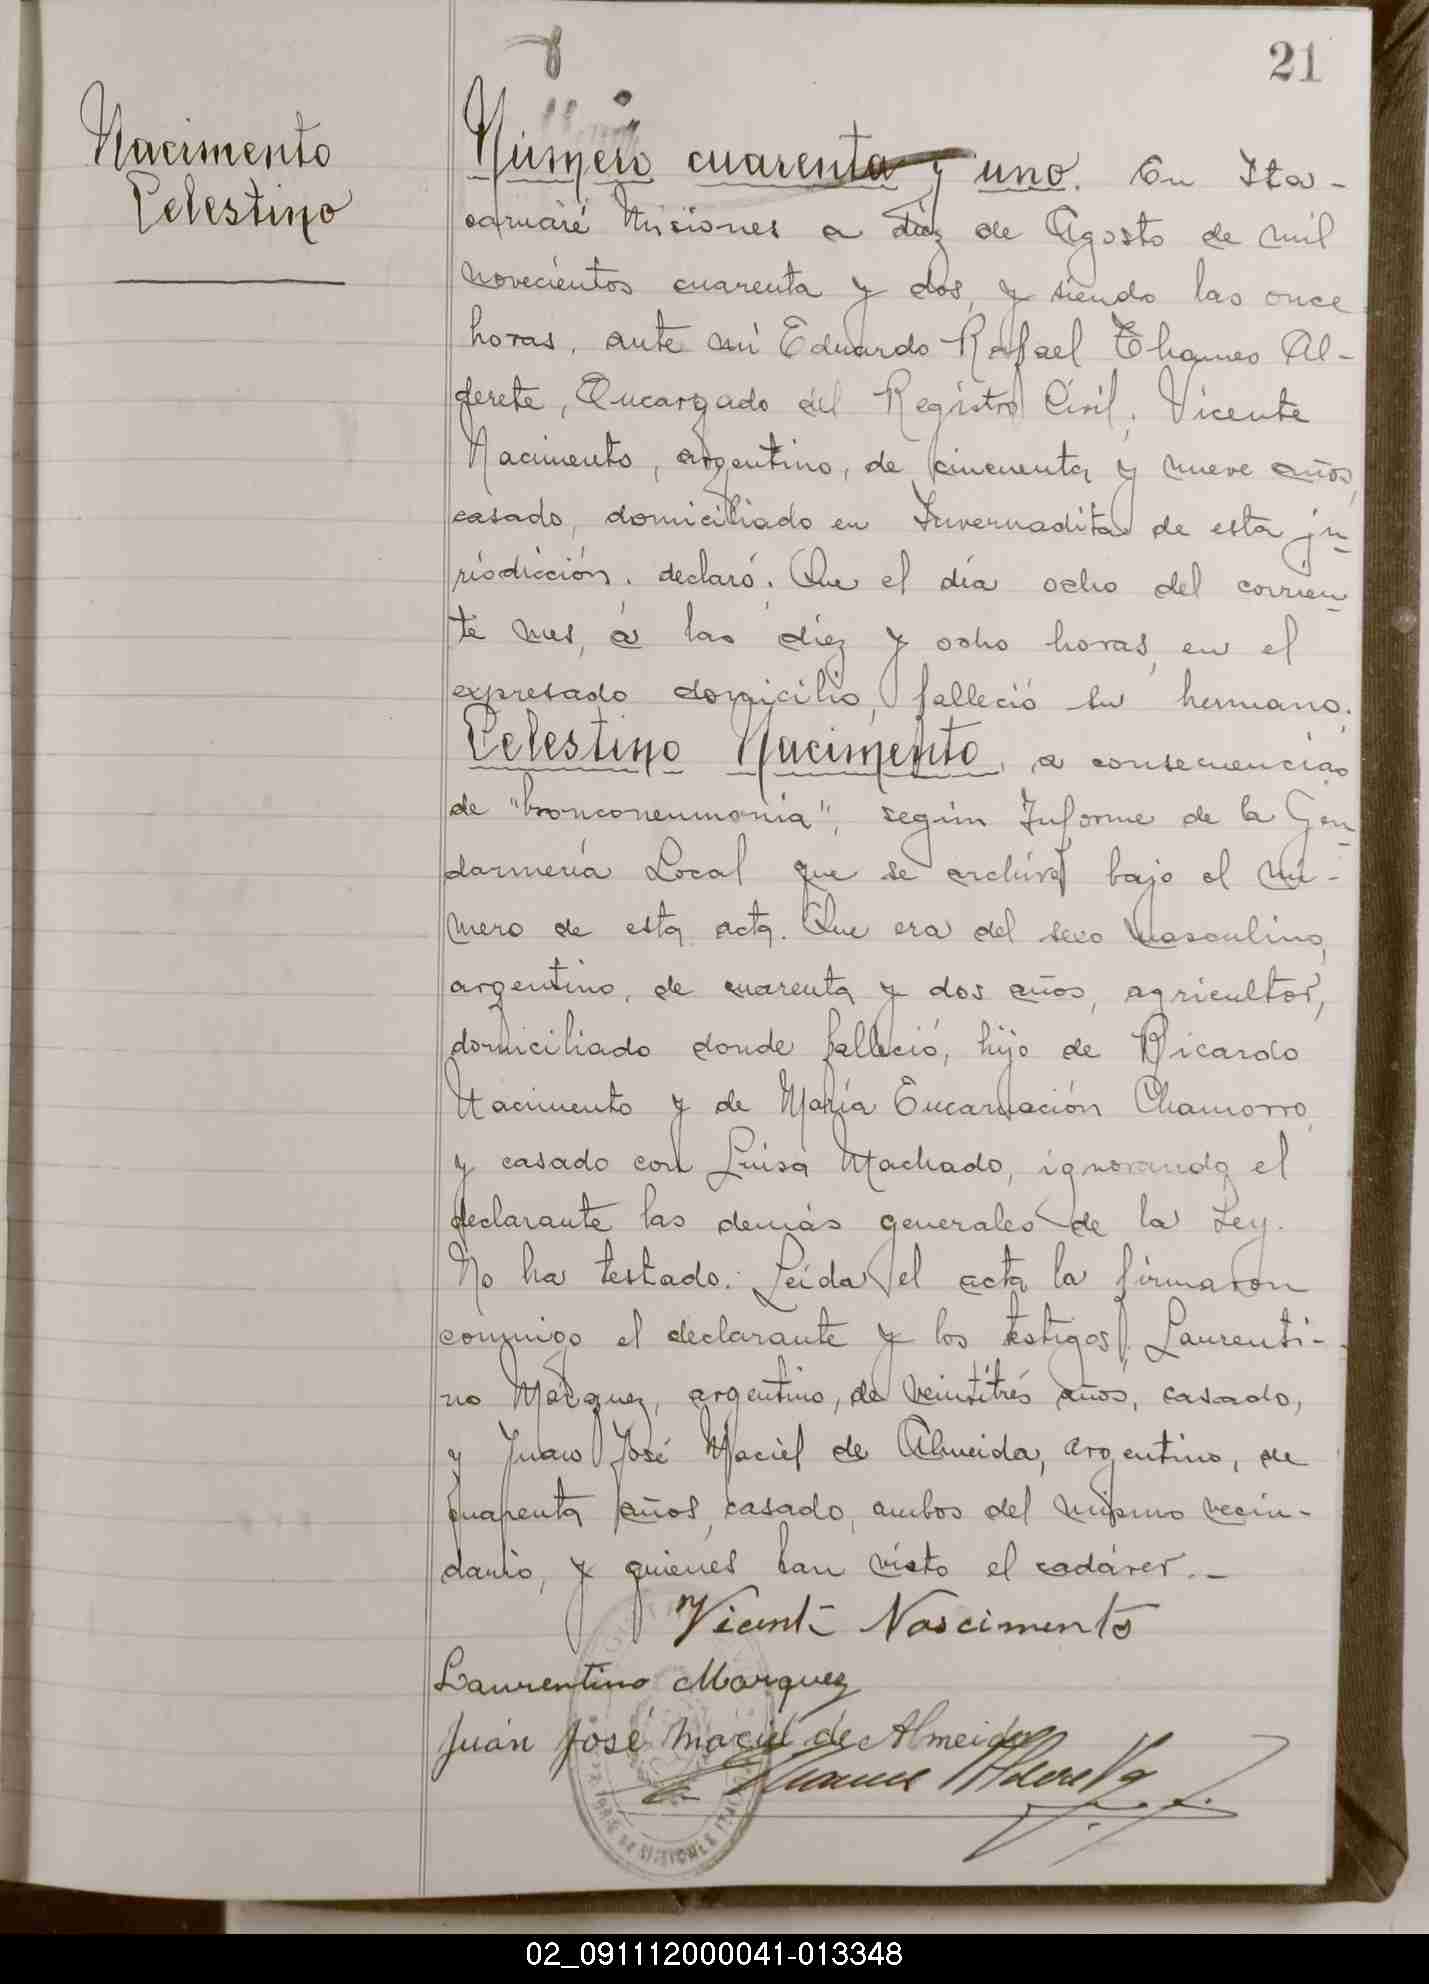 21
Nacimento
Celestino
Número cuarenta y uno. En Ita-
caruaré Misiones a diez de Agosto de mil
novecientos cuarenta y dos, y siendo las once
horas, ante mí Eduardo Rafael Thames Al-
derete, Encargado del Registro Civil, Vicente
Nacimento, argentino, de cincuenta y nueve años,
casado, domiciliado en Invernadita de esta ju-
risdicción, declaró: Que el día ocho del corrien-
te mes, a las diez y ocho horas, en el
expresado domicilio, falleció su hermano.
Celestino Nacimento, a consecuencias
de "bronconeumonía", según Informe de la Gen-
darmería Local que se archiva bajo el nú-
mero de esta acta. Que era del sexo masculino,
argentino, de cuarenta y dos años, agricultor,
domiciliado donde falleció, hijo de Ricardo
Nacimento y de María Encarnación Chamorro,
y casado con Luisa Machado, ignorando el
declarante las demás generales de la Ley.
No ha testado. Leída el acta la firmaron
conmigo el declarante y los testigos, Laurenti-
no Márquez, argentino, de veintitrés años, casado,
y Juan José Maciel de Almeida, argentino, de
cuarenta años, casado, ambos del mismo vecin-
dario, y quienes han visto el cadáver.-
Vicente Nascimento
Laurentino Marquez
Juan José Maciel de Almeida
Thames Alderete
02_091112000041-013348